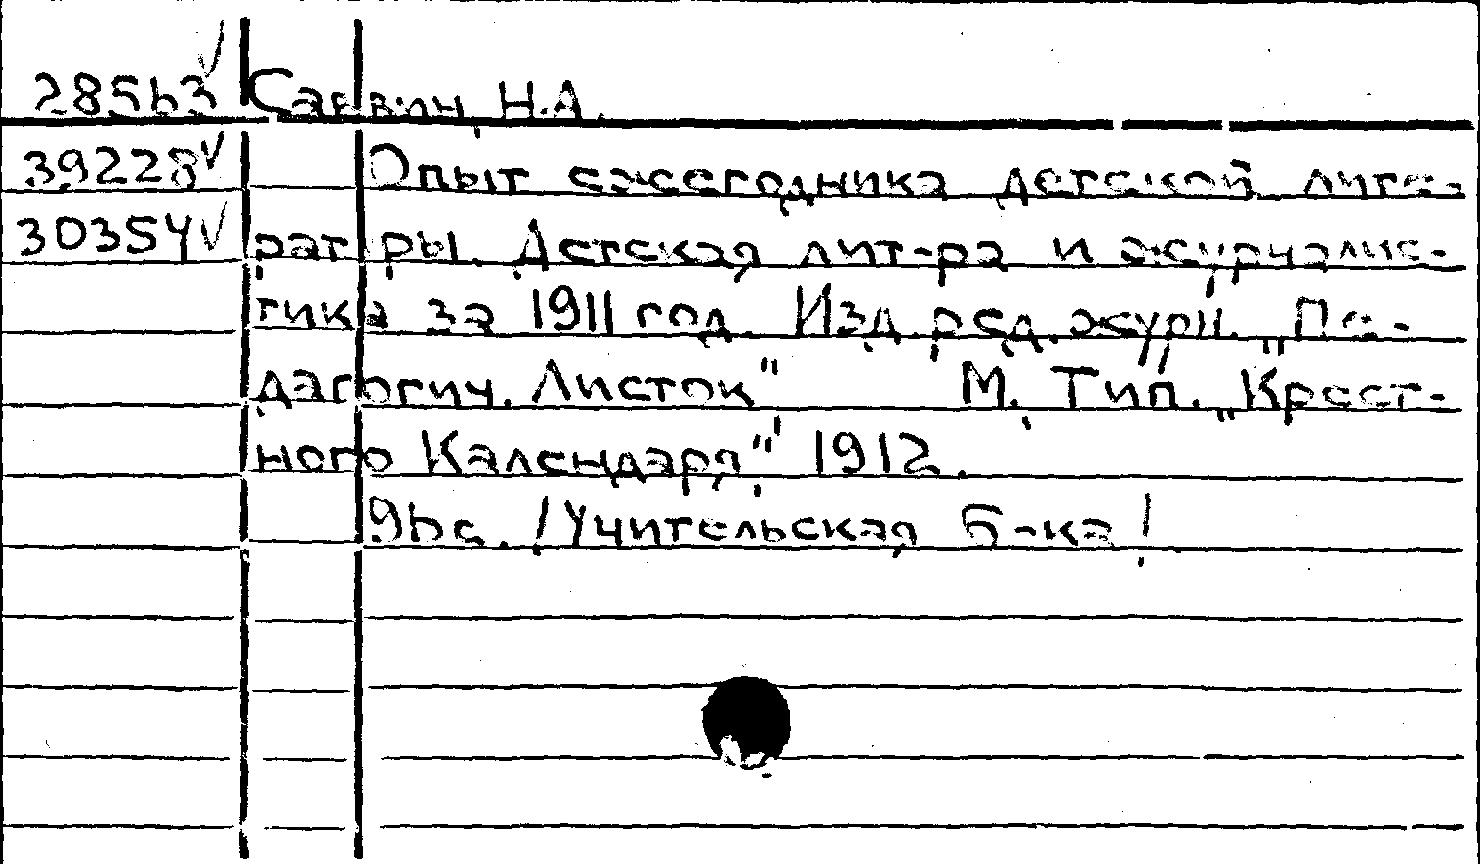 28563 Саввин, Н.А.
39228 Опыт ежегодника детской лите-
30354 ратуры. Детская лит-ра и журналис-
тика за 1911 год. Изд. ред. журн. „Пе-
дагогич. Листок" М. Тип. „Крест-
ного Календаря", 1912.
96 с. /Учительская б-ка/